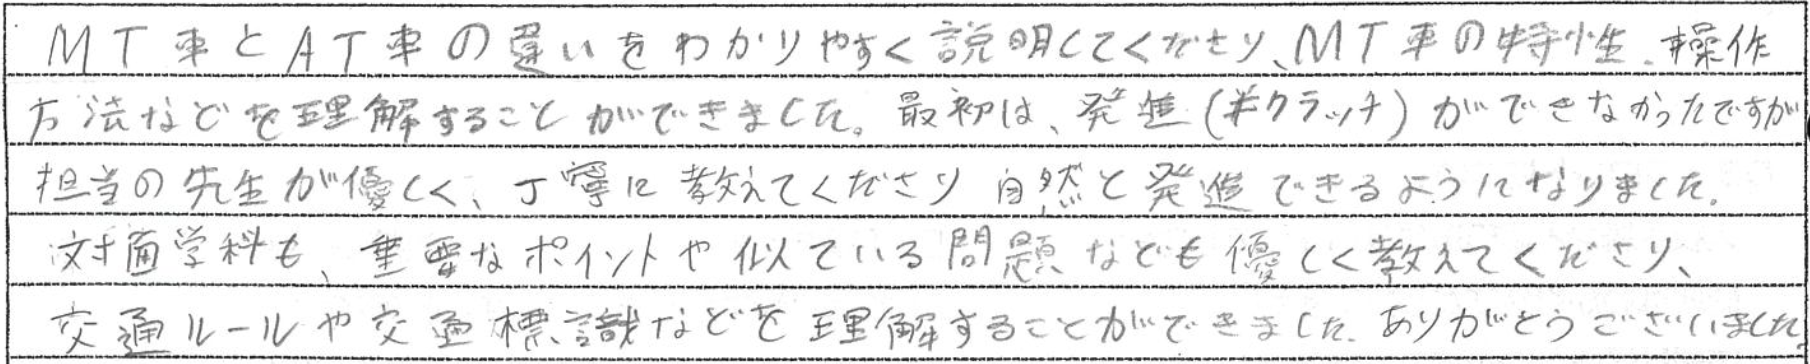 MT車とAT車の違いをわかりやすく説明してくださり、MT車の特性、操作
方法などを理解することができました。最初は、発進(半クラッチ)ができなかったですが
担当の先生が優しく、丁寧に教えてくださり自然と発進できるようになりました。
対面学科も、重要なポイントや似ている問題なども優しく教えてくださり、
交通ルールや交通標識などを理解することができました。ありがとうございました。